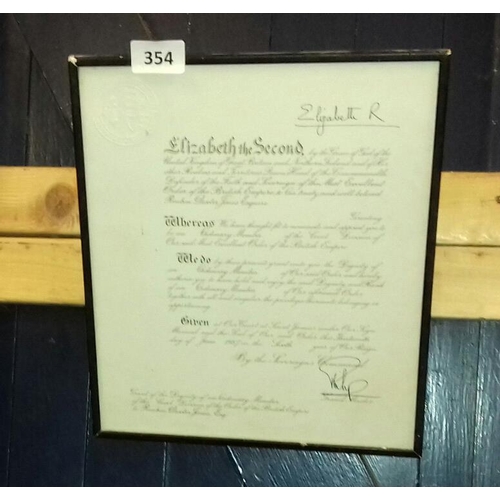 354
Elizabeth R
Elizabeth the Second, by the Grace of God of the
United Kingdom of Great Britain and Northern Ireland and of Her
other Realms and Territories Queen Head of the Commonwealth
Defender of the Faith and Sovereign of the Most Excellent
Order of the British Empire to Our trusty and well beloved
Esquire
Greeting
Whereas We have thought fit to nominate and appoint you to
be an Ordinary Member of the Civil Division of
Our said Most Excellent Order of the British Empire
We do by these presents grant unto you the Dignity of
an Ordinary Member of Our said Order and hereby
authorise you to have hold and enjoy the said Dignity and Rank
of an Ordinary Member of Our aforesaid Order
together with all and singular the privileges thereunto belonging or
appertaining
Given at Our Court at Saint James's under Our Sign
Manual and the Seal of Our said Order this Thirteenth
day of June 1957 in the Sixth year of Our Reign
By the Sovereign's Command
Grand Master
Grant of the Dignity of an Ordinary Member
of the Civil Division of the Order of the British Empire
to Jones Esq